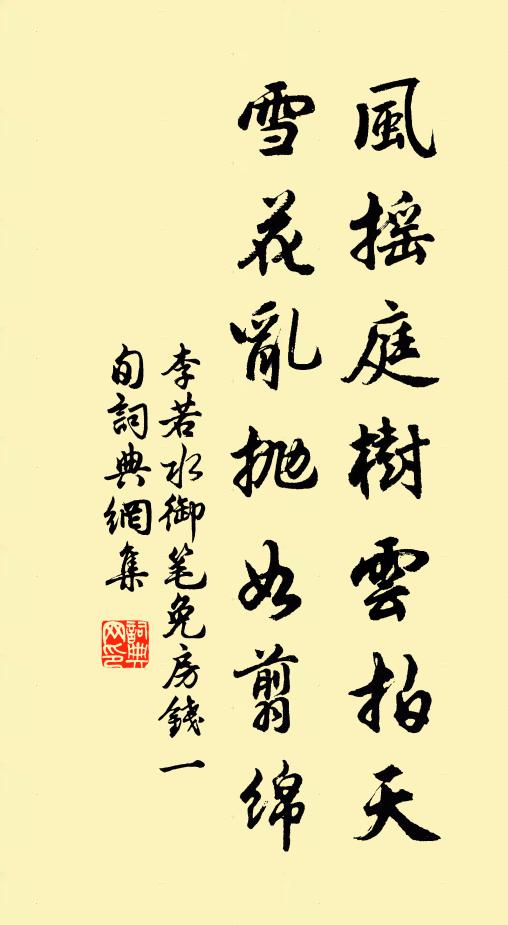 風摇庭樹雲拍天
雪花亂抛如翦綿
李若水御笔免房錢一
句詞典網集
詞典网印